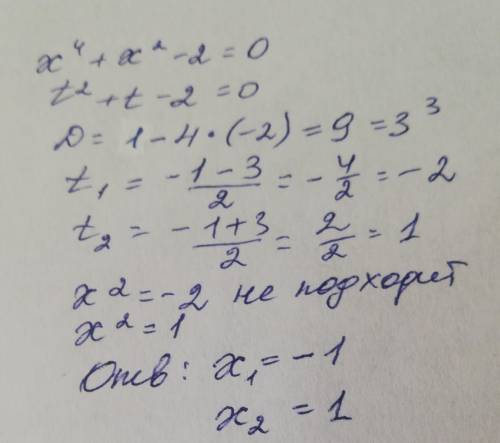 x⁴ + x² - 2 = 0
t² + t - 2 = 0
D = 1 - 4 · (-2) = 9 = 3³
t₁ = (-1 - 3)/2 = -4/2 = -2
t₂ = (-1 + 3)/2 = 2/2 = 1
x² = -2 не подходит
x² = 1
Отв: x₁ = -1
x₂ = 1